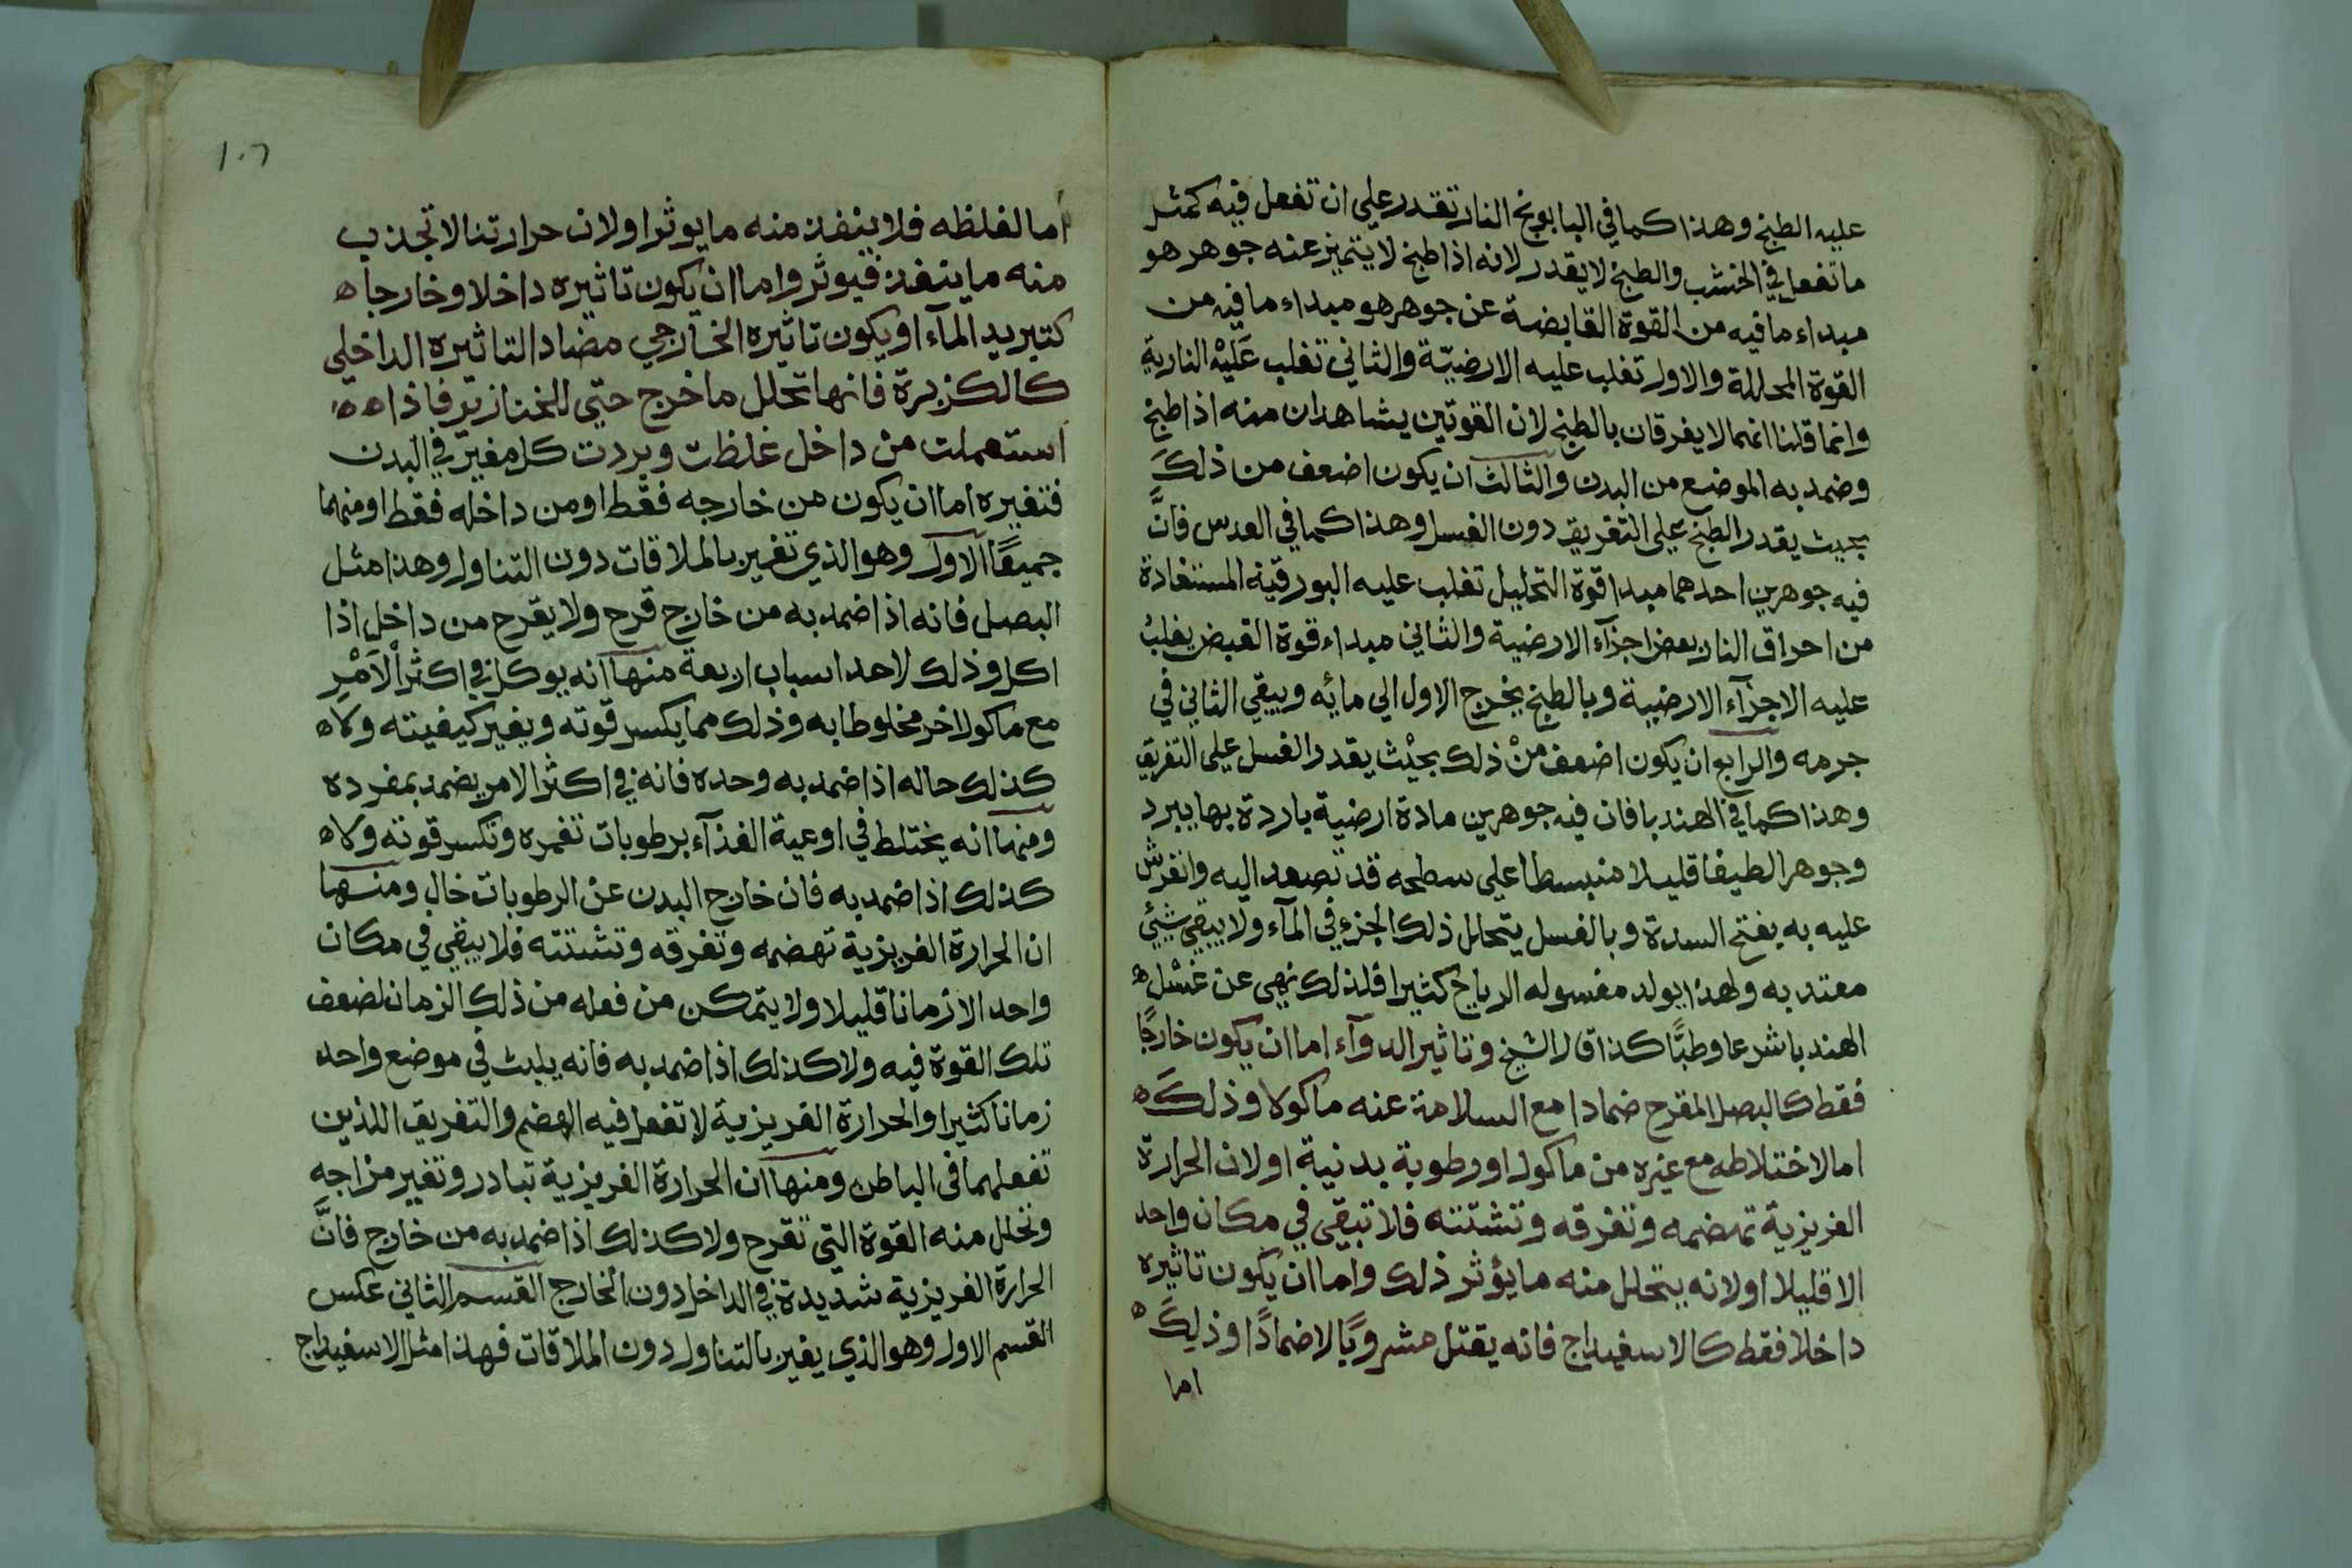 عليه الطبخ وهذا كما في البابونج النار تقدر علي ان تفعل فيه كمثل
ما تفعل في الخشب والطبخ لا يقدر لانه اذا طبخ لا يتميز عنه جوهر هو
مبداء ما فيه من القوة القابضة عن جوهر هو مبداء ما فيه من
القوة المحللة والاول تغلب عليه الارضيّة والثاني تغلب عَليْه النارية
وانما قلنا انهما لا يفرقان بالطبخ لان القوتين يشاهدان منه اذا طبخ
وضمد به الموضع من البدن والثالث ان يكون اضعف من ذلكَ
بحيث يقدر الطبخ علي التفريق دون الغسل وهذا كما في العدس فانَّ
فيه جوهرين احدهما مبدا قوة التحليل تغلب عليه البورقية المستفادة
من احراق النار بعض اجزآء الارضية والثاني مبداء قوة القبض يغلبُ
عليه الاجزآء الارضية وبالطبخ يخرج الاول الي مائه ويبقي الثاني في
جرمه والرابع ان يكون اضعف منْ ذلك بحيْث يقدر الغسل علي التفريق
وهذا كما في الهندبا فان فيه جوهرين مادة ارضية باردة بها يبرد
وجوهرا لطيفا قليلا منبسطا علي سطحه قد تصعد اليه وانفرش
عليه به يفتح السدة وبالغسل يتحلل ذلك الجزء في المآء ولا يبقي شيئ
معتد به ولهذا يولد مغسوله الرياح كثيرا فلذلك نهي عن غسْل ه
الهندبا شرعا وطبًّا كذا قال الشيخ وتاثير الدوآء اما ان يكون خارجًا
فقط كالبصل المقرح ضمادا مع السلامة عنه ماكولا وذلكَ ه
اما لاختلاطه مع غيره من ماكول او رطوبة بدنية او لان الحرارة
الغريزية تهضمه وتفرقه وتشتته فلا تبقي في مكان واحد
الا قليلا او لانه يتحلل منه ما يؤثر ذلك واما ان يكون تاثيره
داخلا فقط كالاسفيداج فانه يقتل مشروبًا لا ضمادًا وذلِكَ ه
اما
١٠٦
اما لغلظه فلا ينفذ منه ما يوثر او لان حرارتنا لا تجذب
منه ما ينفذ فيوثر واما ان يكون تاثيره داخلا وخارجا ه
كتبريد المآء او يكون تاثيره الخارجي مضادا لتاثيره الداخلي
كالكزبرة فانها تحلل ما خرج حتي الخنازير فاذا ه ه
استعملت من داخل غلظت وبردت كل مغير في البدن
فتغيره اما ان يكون من خارجه فقط او من داخله فقط او منهما
جميعًا الاول وهو الذي تغير بالملاقات دون التناول وهذا مثل
البصل فانه اذا ضمد به من خارج قرح ولا يقرح من داخل اذا
اكل وذلك لاحد اسباب اربعة منها انه يوكل في اكثر الاَمْرِ
مع ماكول اخر مخلوطا به وذلك مما يكسر قوته ويغير كيفيته ولا ه
كذلك حاله اذا ضمد به وحده فانه في اكثر الامر يضمد بمفرده
ومنها انه يختلط في اوعية الغذآء برطوبات تغمره وتكسر قوته ولا ه
كذلك اذا ضمد به فان خارج البدن عن الرطوبات خال ومنها
ان الحرارة الغريزية تهضمه وتفرقه وتشتته فلا يبقي في مكان
واحد الا زمانا قليلا ولا يتمكن من فعله من ذلك الزمان لضعف
تلك القوة فيه ولا كذلك اذا ضمد به فانه يلبث في موضع واحد
زمانا كثيرا والحرارة الغريزية لا تفعل فيه الهضم والتفريق اللذين
تفعلهما في الباطن ومنها ان الحرارة الغريزية تبادر وتغير مزاجه
وتحلل منه القوة التي تقرح ولا كذلك اذا ضمد به من خارج فانَّ
الحرارة الغريزية شديدة في الداخل دون الخارج القسم الثاني عكس
القسم الاول وهو الذي يغير بالتناول دون الملاقات فهذا مثل الاسفيداج